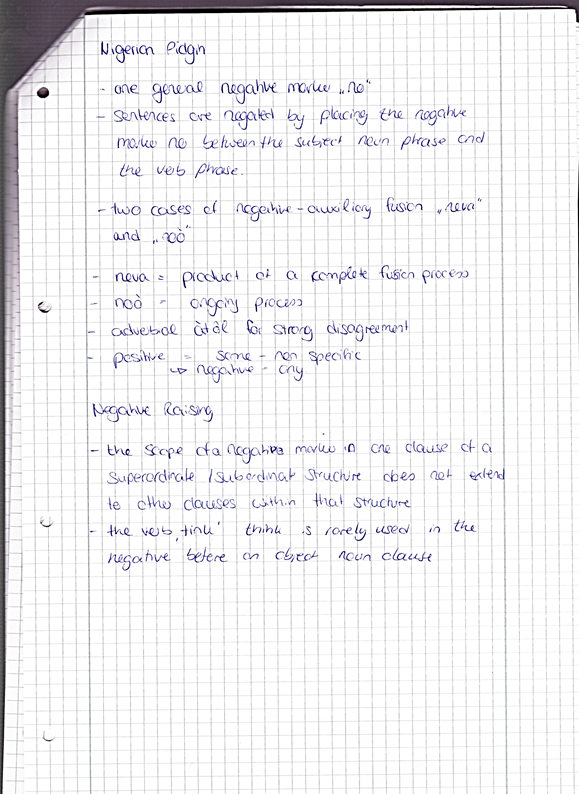 Nigerian Pidgin
- one general negative marker „no"
- sentences are negated by placing the negative
marker no between the subject noun phrase and
the verb phrase.
- two cases of negative-auxiliary fusion „neva"
and „noò"
- neva = product of a complete fusion process
- noò = ongoing process
- adverbal àtàl for strong disagreement
- positive = some - non specific
↳ negative - any
Negative Raising
- the scope of a negative marker in one clause of a
superordinate / subordinate structure does not extend
to other clauses within that structure
- the verb ‚tink' think is rarely used in the
negative before an object noun clause